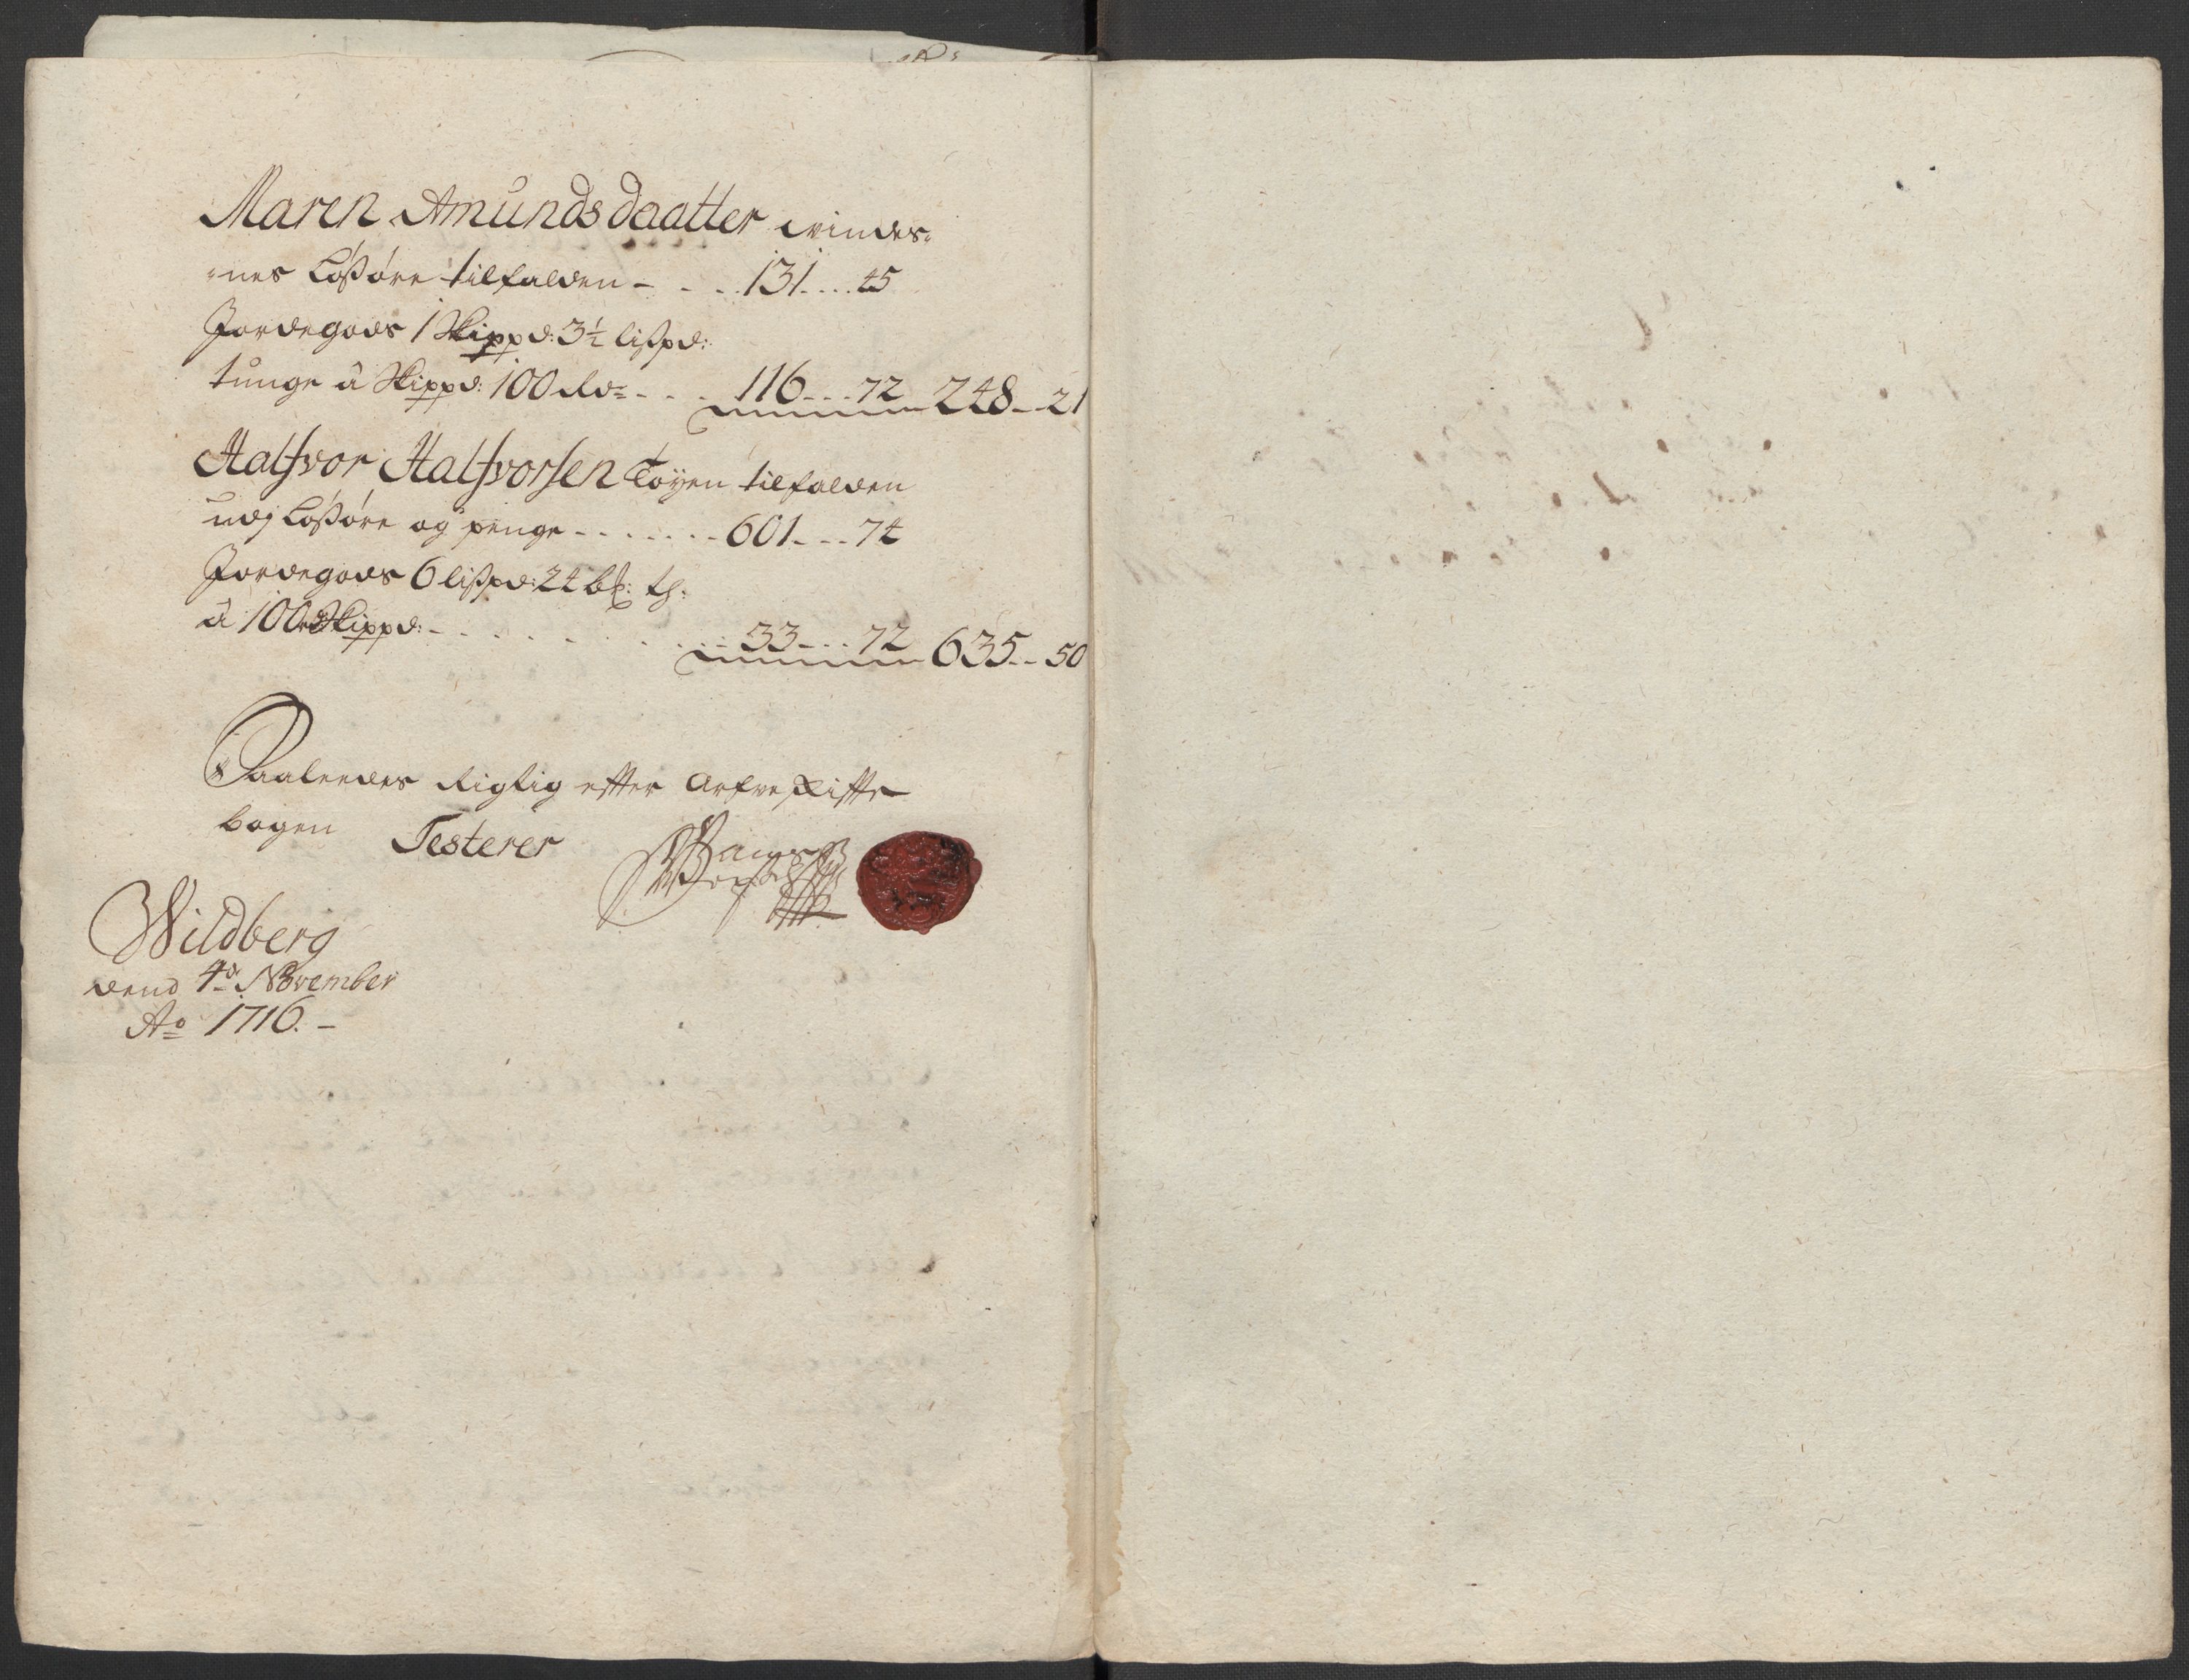 Maren Amunds daatter qvindes⸗
⸗nes Løsøre tilfalden - - - 131 - - - 45
Jordegods 1 Skippd: 3½ lispd:
tunge â Skippd: 100 Rd - - - 116 - - - 72 248 - - 21
Halfvor Halfvorsen Tøyen tilfalden
udj Løsøre og penge - - - - - - - 601 - - - 74
Jordegods 6 lispd: 24 bp: th:
â 100 rd Skippd: - - - - - - - 33 - - - 72 635 - - 50
Saaledes Rigtig efter Arfve skifte
bogen Testerer
Wildberg
dend 4de November
Ao 1716. -